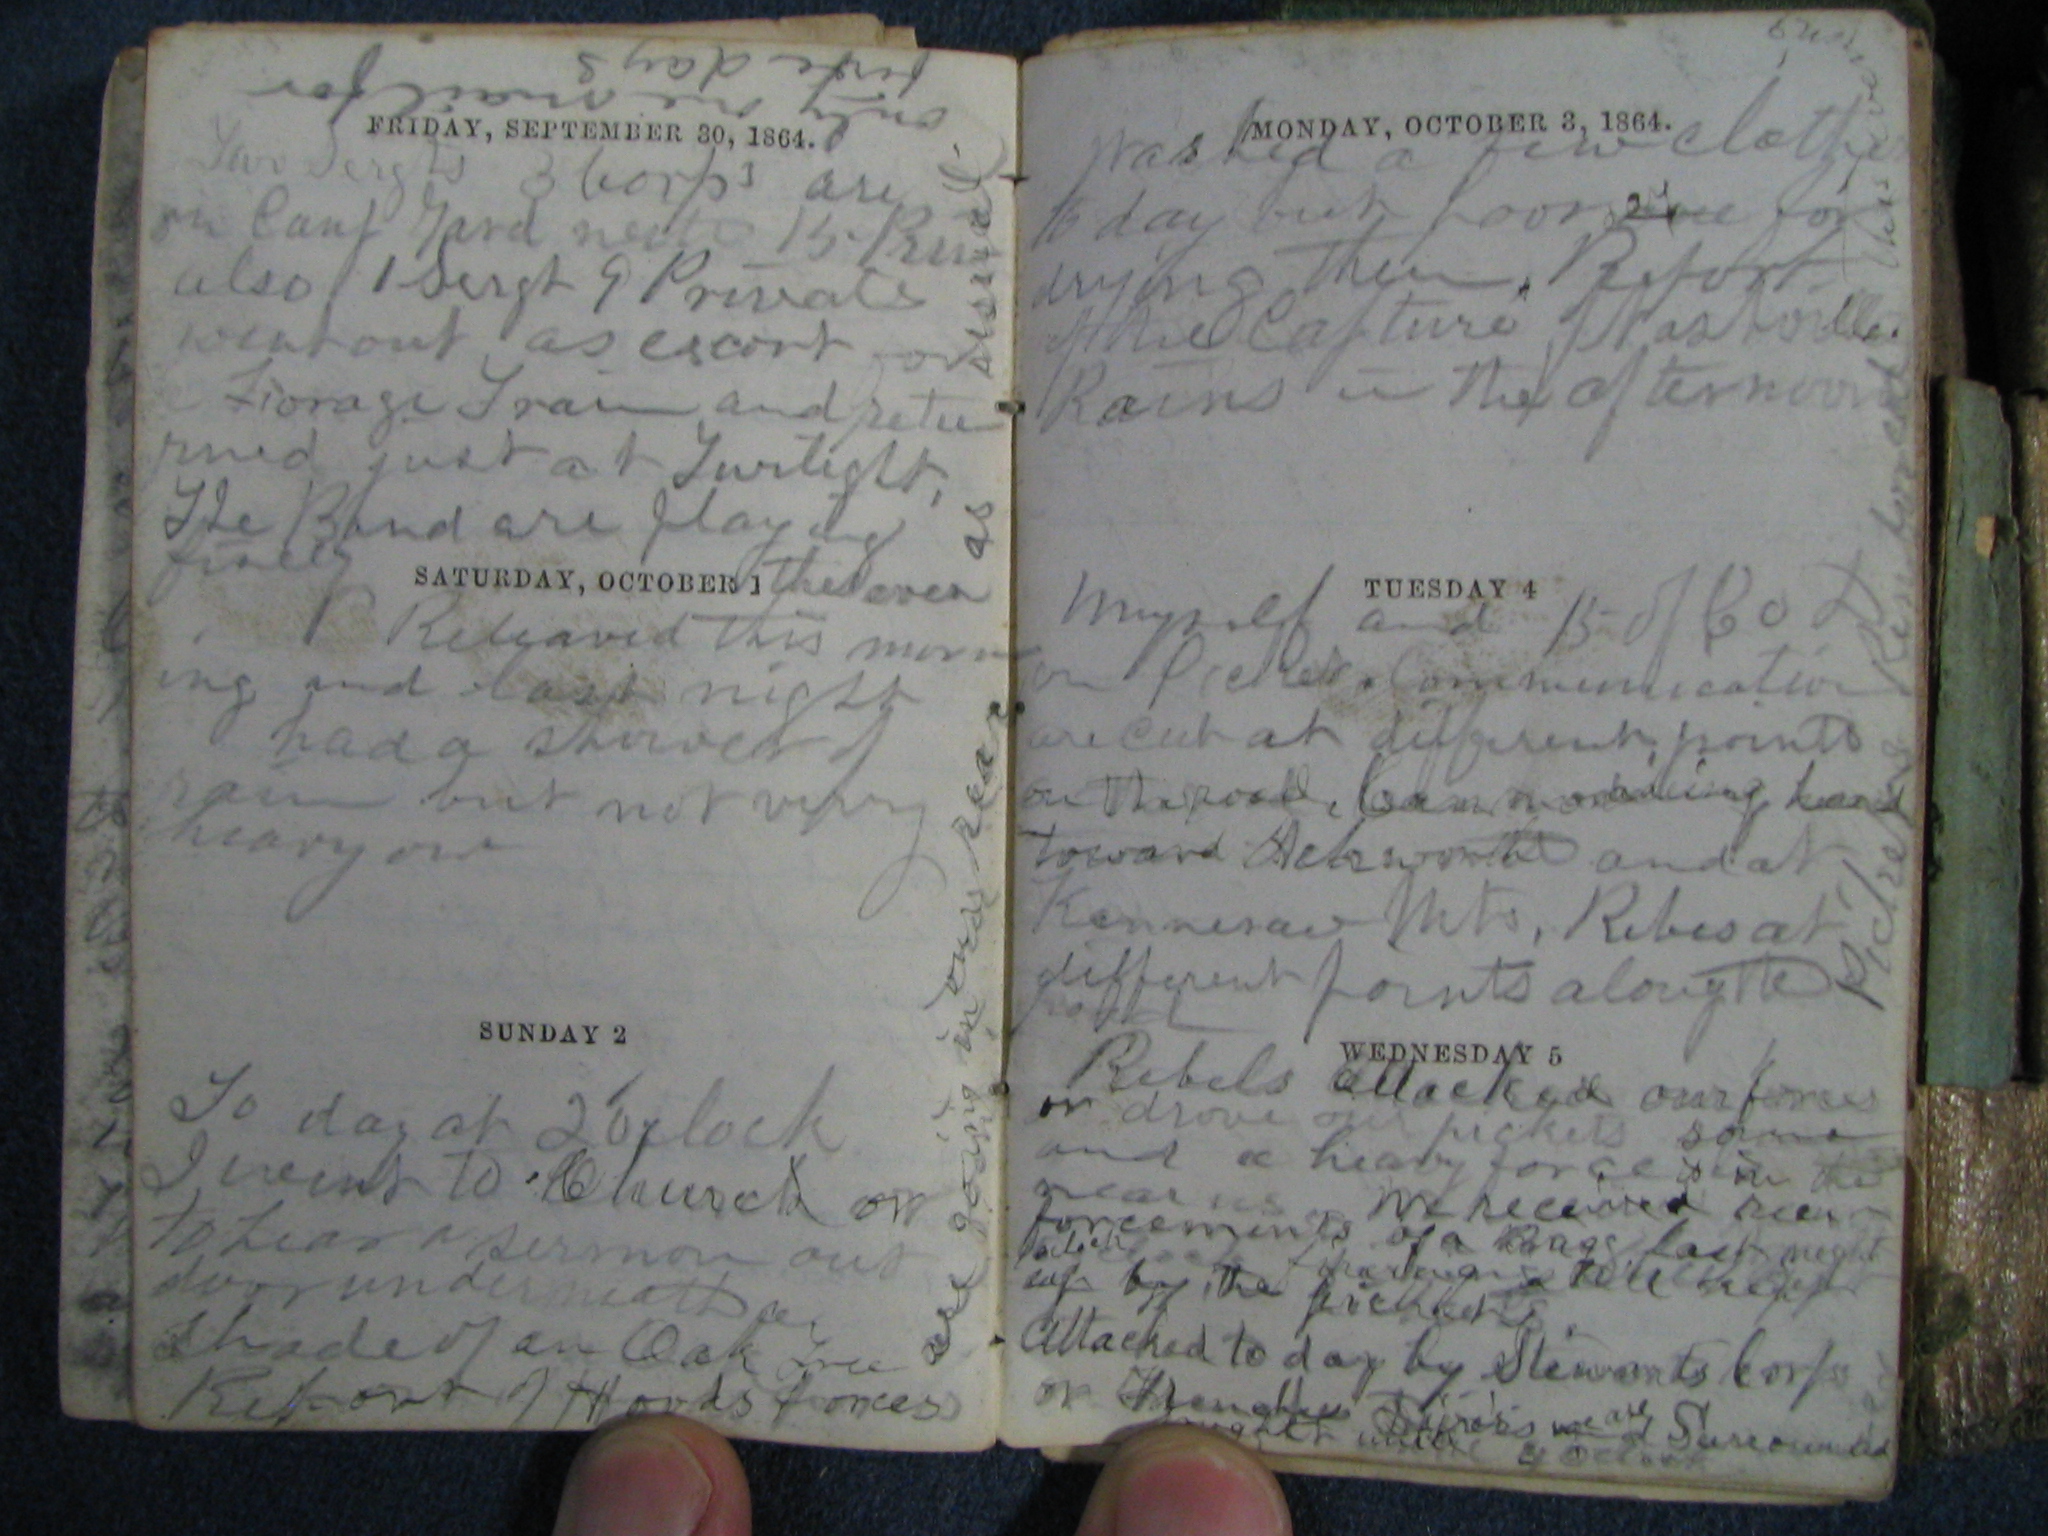 only no mail for
five days
FRIDAY, SEPTEMBER 30, 1864.
Two Sergts 3 Corps are
on Camp Gard next 15 Priv
also 1 Sergt 9 Privats
went out as escort for
a Fiorage Train and retu
rned just at Twilight,
The Band are playing
finely the even
SATURDAY, OCTOBER 1
Releaved this morn
ing and last night
had a shower of
rain but not very
heavy one
SUNDAY 2
To day at 2 Oclock
I went to Church or
to hear a sermon out
door underneath a
shade of an Oak Tree
Report of Hoods forcess
are going in our rear
as usual.
MONDAY, OCTOBER 3, 1864.
Washed a few clothes
to day but poor for
drying them. Report
of the Capture of Nashville.
Rains in the afternoon
TUESDAY 4
Myself and 15 of Co D
on Picket. Communication
are cut at different points
on the road, Cannonading heard
toward Ackworth and at
Kennesaw Mts, Rebes at
different points along the
road
Pickets Reinforced this
WEDNESDAY 5
Rebels attacked our forces
or drove our pickets some
and a heavy force is in the
near us. We received rein
forcements of a Brag. last night
still kept
up by the pickets.
Attacked to day by Stewarts Corps
or we are Surrounded
night until Oclock